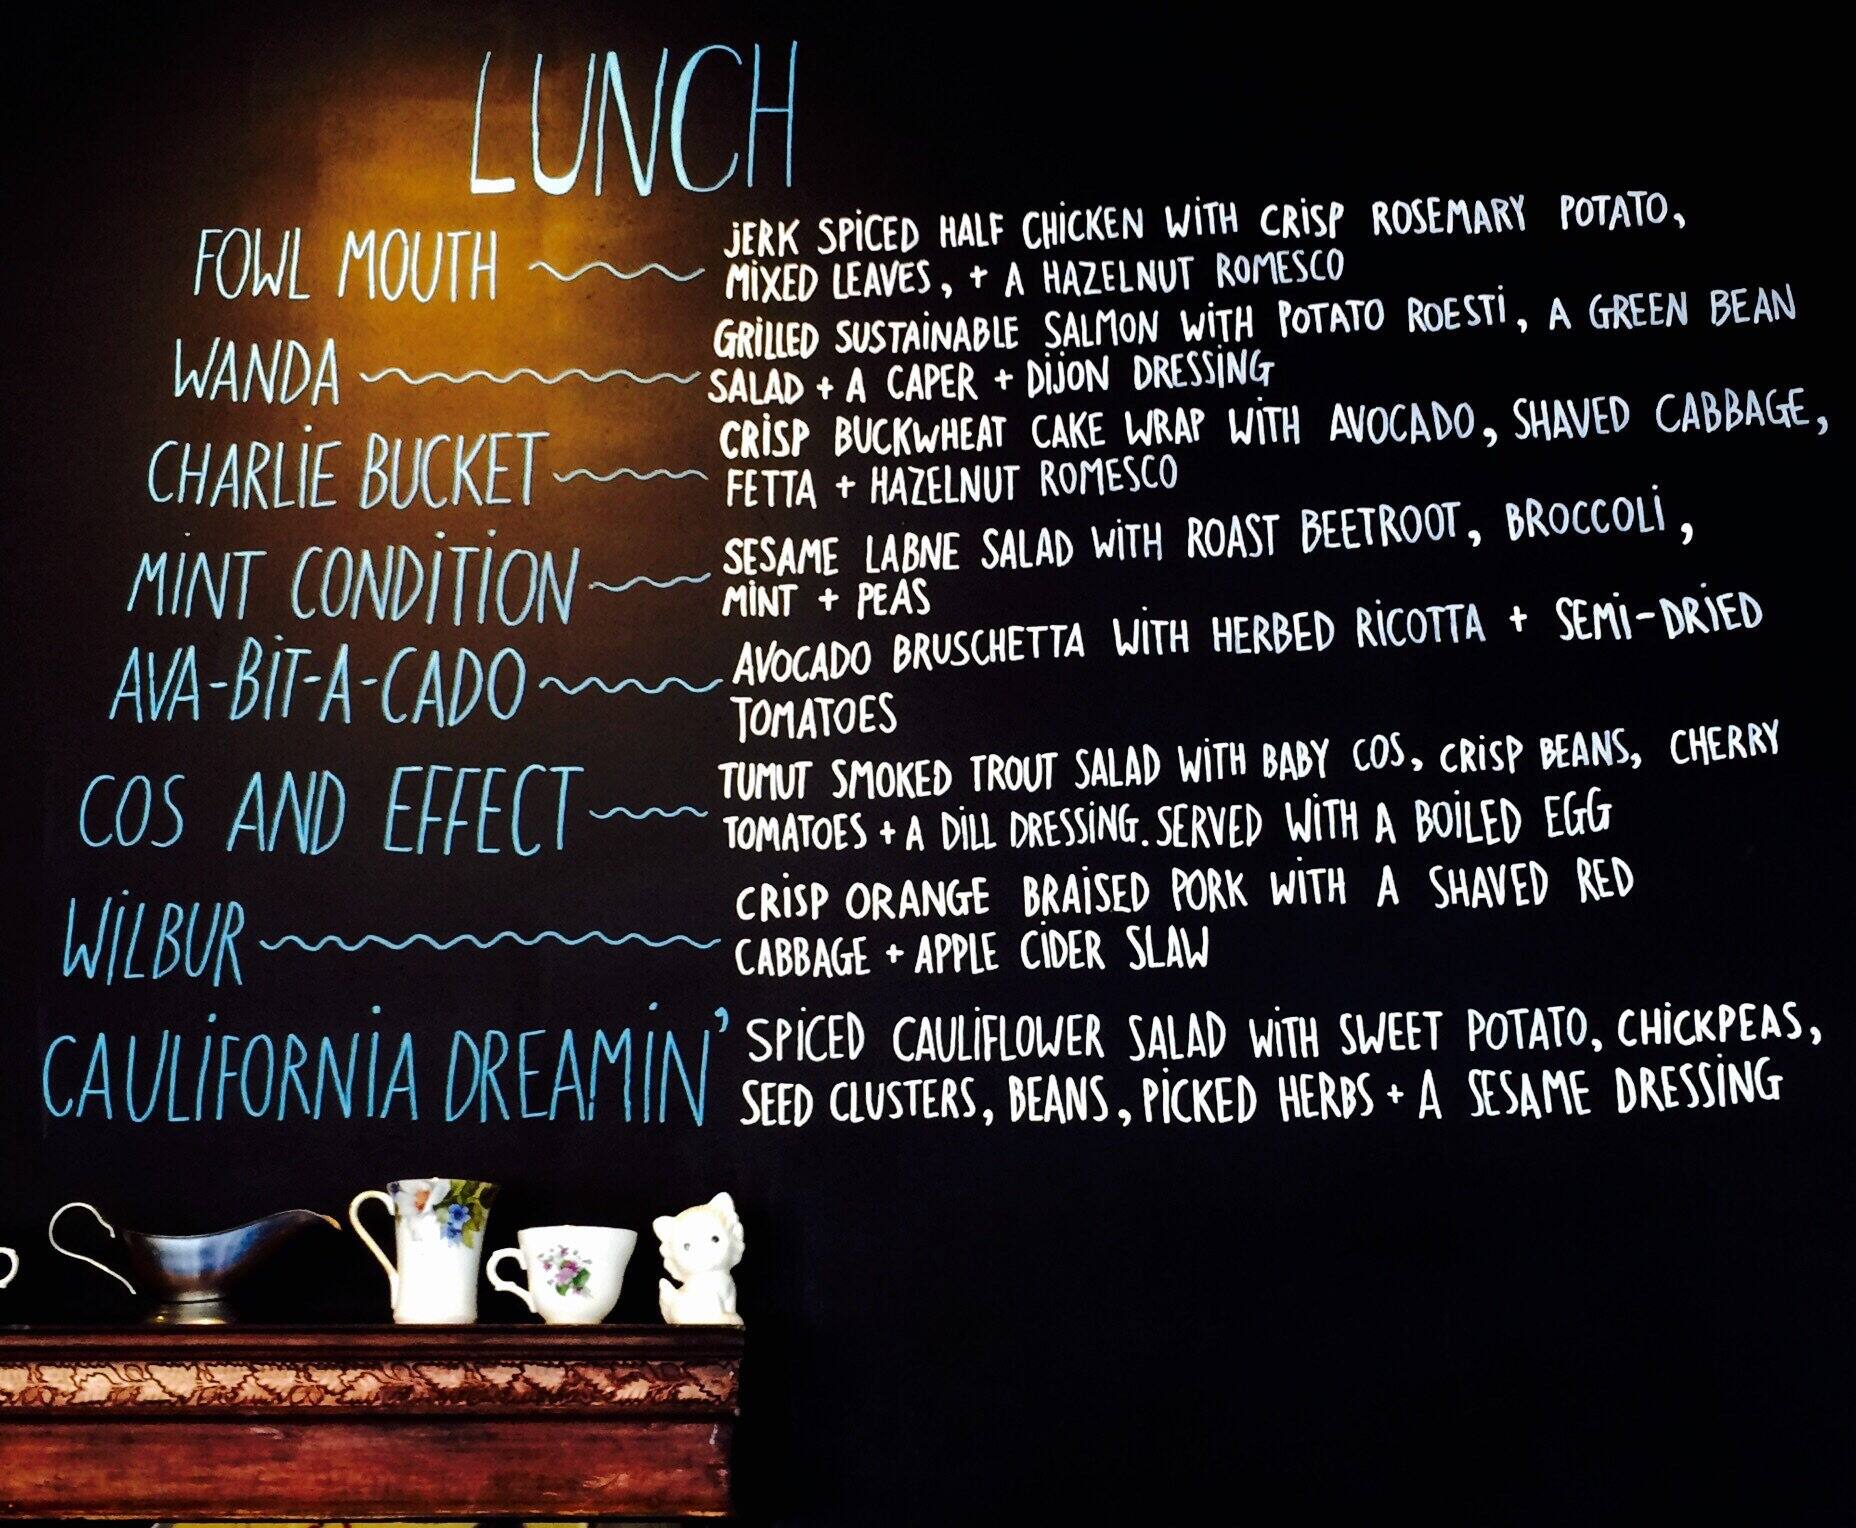 LUNCH
FOWL MOUTH
JERK SPICED HALF CHICKEN WITH CRISP ROSEMARY POTATO,
MIXED LEAVES, + A HAZELNUT ROMESCO
WANDA
GRILLED SUSTAINABLE SALMON WITH POTATO ROESTI, A GREEN BEAN
SALAD + A CAPER + DIJON DRESSING
CHARLIE BUCKET
CRISP BUCKWHEAT CAKE WRAP WITH AVOCADO, SHAVED CABBAGE,
FETTA + HAZELNUT ROMESCO
MINT CONDITION
SESAME LABNE SALAD WITH ROAST BEETROOT, BROCCOLI,
MINT + PEAS
AVA-BIT-A-CADO
AVOCADO BRUSCHETTA WITH HERBED RICOTTA + SEMI-DRIED
TOMATOES
COS AND EFFECT
TUMUT SMOKED TROUT SALAD WITH BABY COS, CRISP BEANS, CHERRY
TOMATOES + A DILL DRESSING. SERVED WITH A BOILED EGG
WILBUR
CRISP ORANGE BRAISED PORK WITH A SHAVED RED
CABBAGE + APPLE CIDER SLAW
CAULIFORNIA DREAMIN'
SPICED CAULIFLOWER SALAD WITH SWEET POTATO, CHICKPEAS,
SEED CLUSTERS, BEANS, PICKED HERBS + A SESAME DRESSING